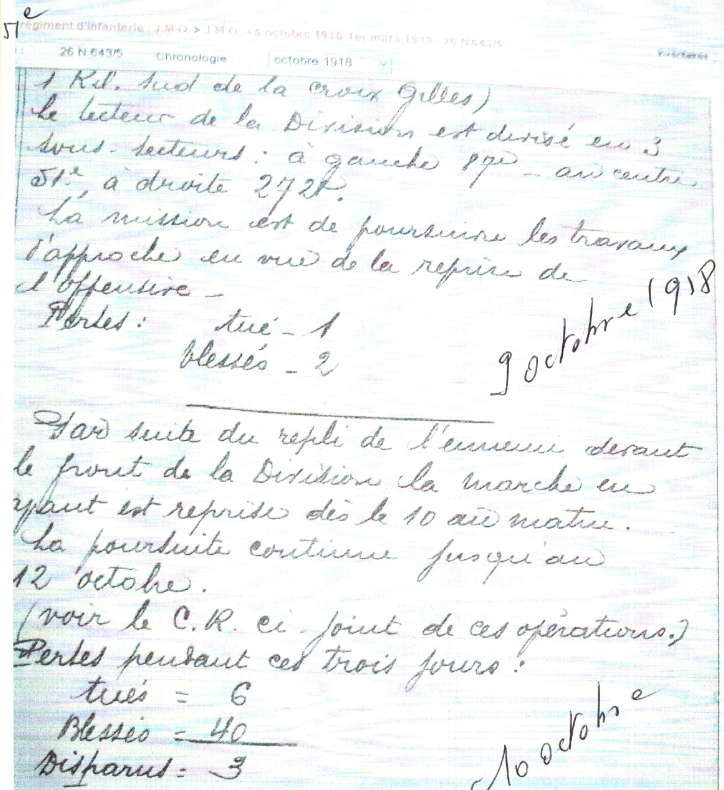 51e
régiment d'infanterie : J.M.O. > J.M.O. > 5 octobre 1918 1er mars 1919 : 26 N 643/5
26 N 643/5 Chronologie octobre 1918
1 Kil. sud de la Croix Gilles)
Le secteur de la Division est divisé en 3
sous-secteurs : à gauche 87e - au centre
51e, à droite 272e.
La mission est de poursuivre les travaux
d'approche en vue de la reprise de
l'offensive -
Pertes : tué - 1
blessés - 2
9 octobre 1918
Par suite du repli de l'ennemi devant
le front de la Division la marche en
avant est reprise dès le 10 au matin.
La poursuite continue jusqu'au
12 octobre.
(voir le C.R. ci-joint de ces opérations.)
Pertes pendant ces trois jours :
tués = 6
Blessés = 40
Disparus = 3
10 octobre